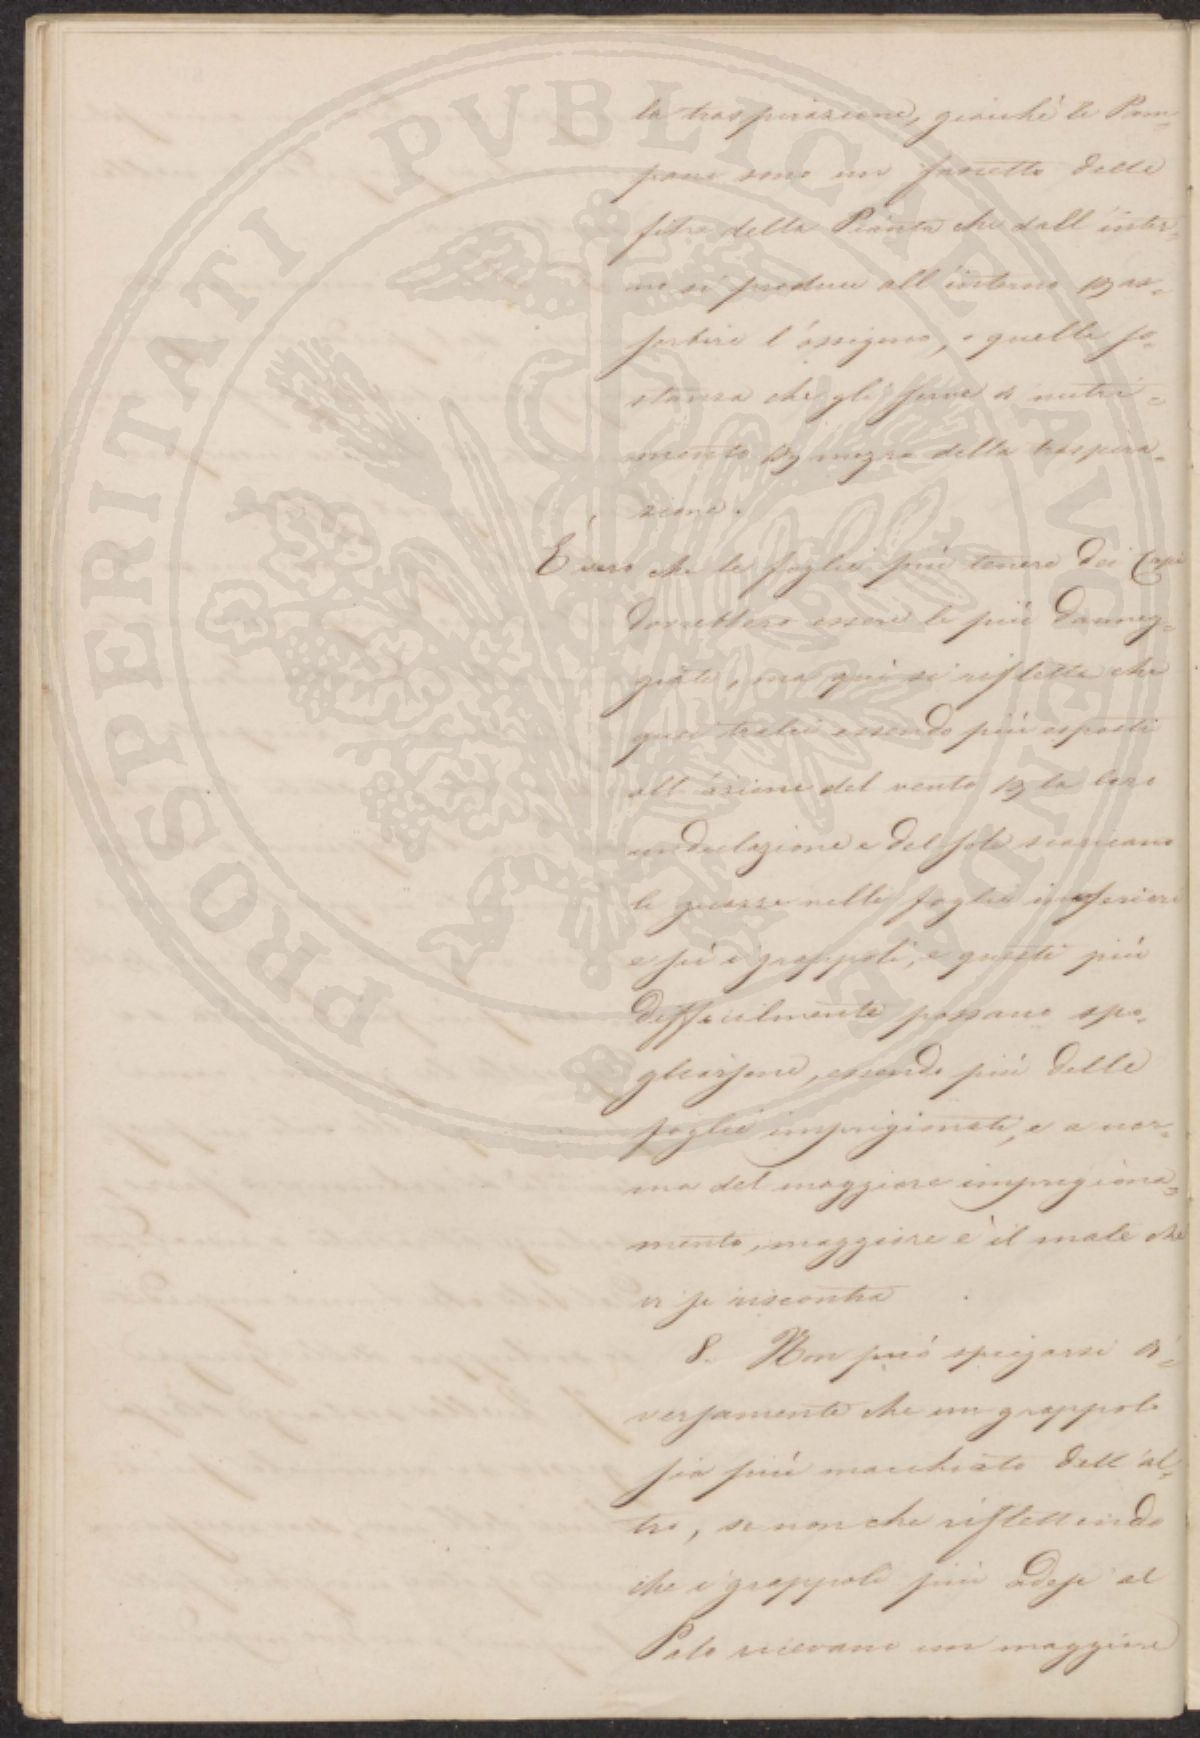 PROSPERITATI PVBLICAE AVGENDAE
la traspirazione, giacchè le Pam=
pane sono un fascetto delle
fibre della Pianta che dall'inter=
no si produce all'esterno as=
sorbire l'ossigeno, e quelle so=
stanza che gli serve di nutri=
mento mezzo della traspira=
zione.
È vero che le foglie più tenere dei Capi
dovrebbero essere le più danneg=
giate, ma quì si rifletta che
quei tralci essendo più esposti
all'azione del vento la loro
undulazione e del sole scaricano
le goccie nelle foglie inferiori
e sù i grappoli, e questi più
difficilmente possano spo=
gliarsene, essendo più delle
foglie imprigionati, e a nor=
ma del maggiore imprigiona=
mento, maggiore è il male che
vi si riscontra
8. Non può spiegarsi di=
versamente che un grappolo
sia più macchiato dell'al=
tro, se non che riflettendo
che i grappoli più adesi al
Palo ricevano un maggiore